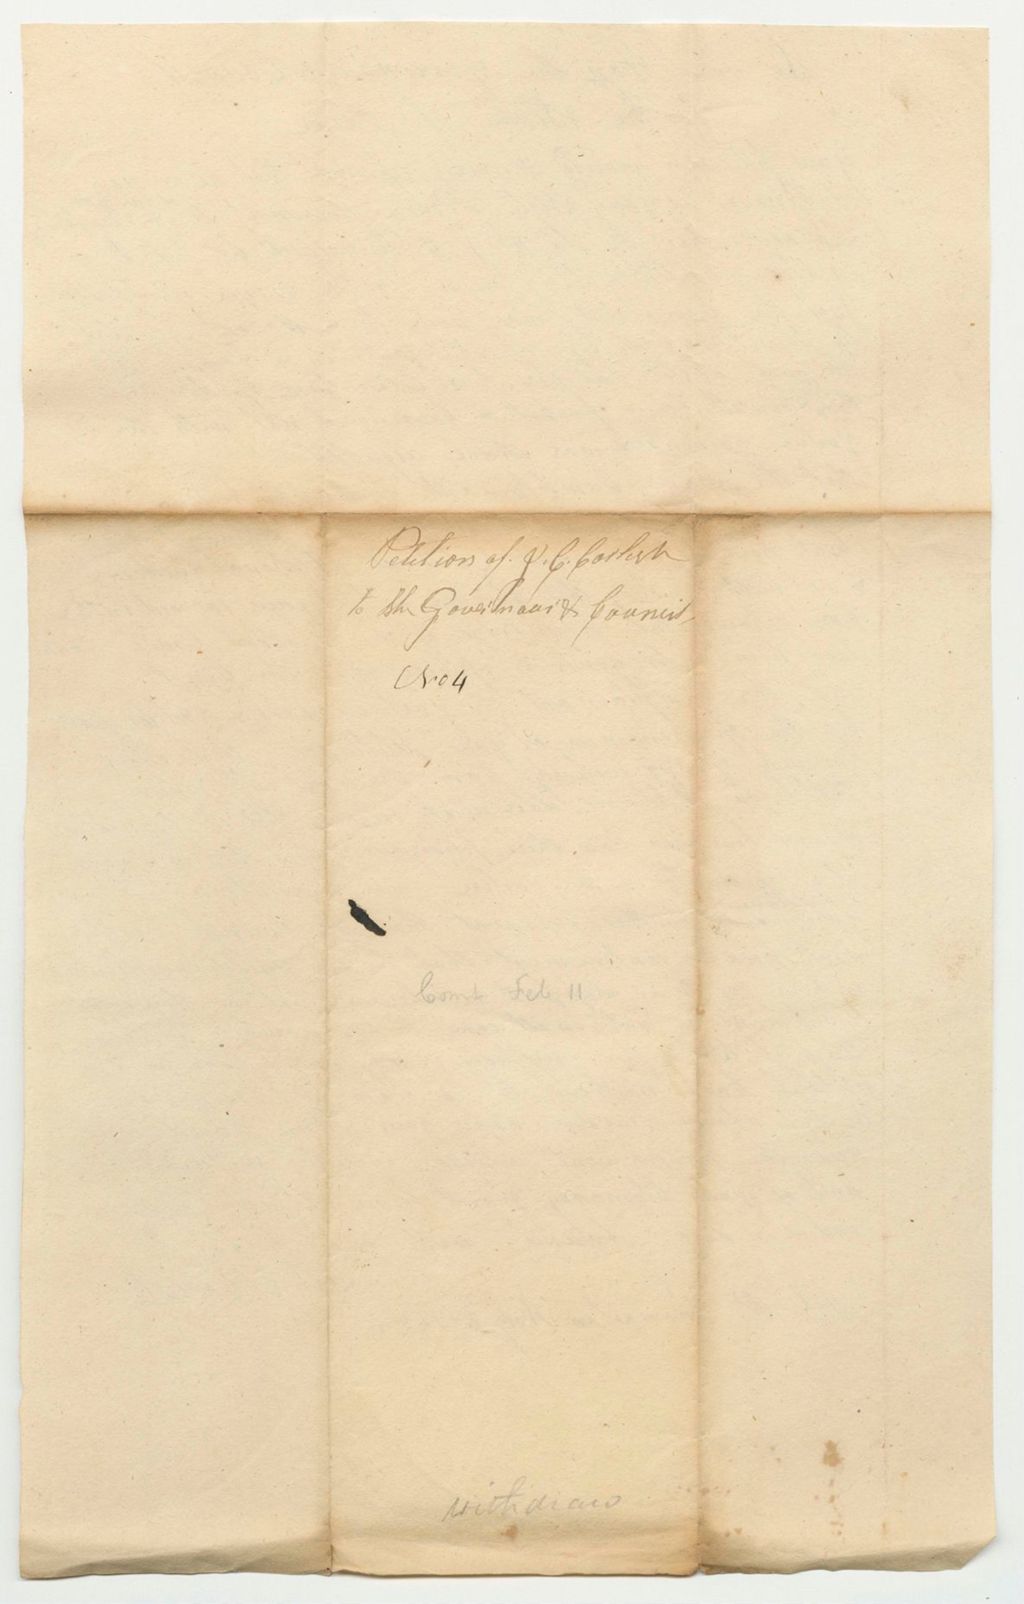 Petition of J. C. Corlish
to the Governour & Council
No 4
Comt Feb 11
withdraw